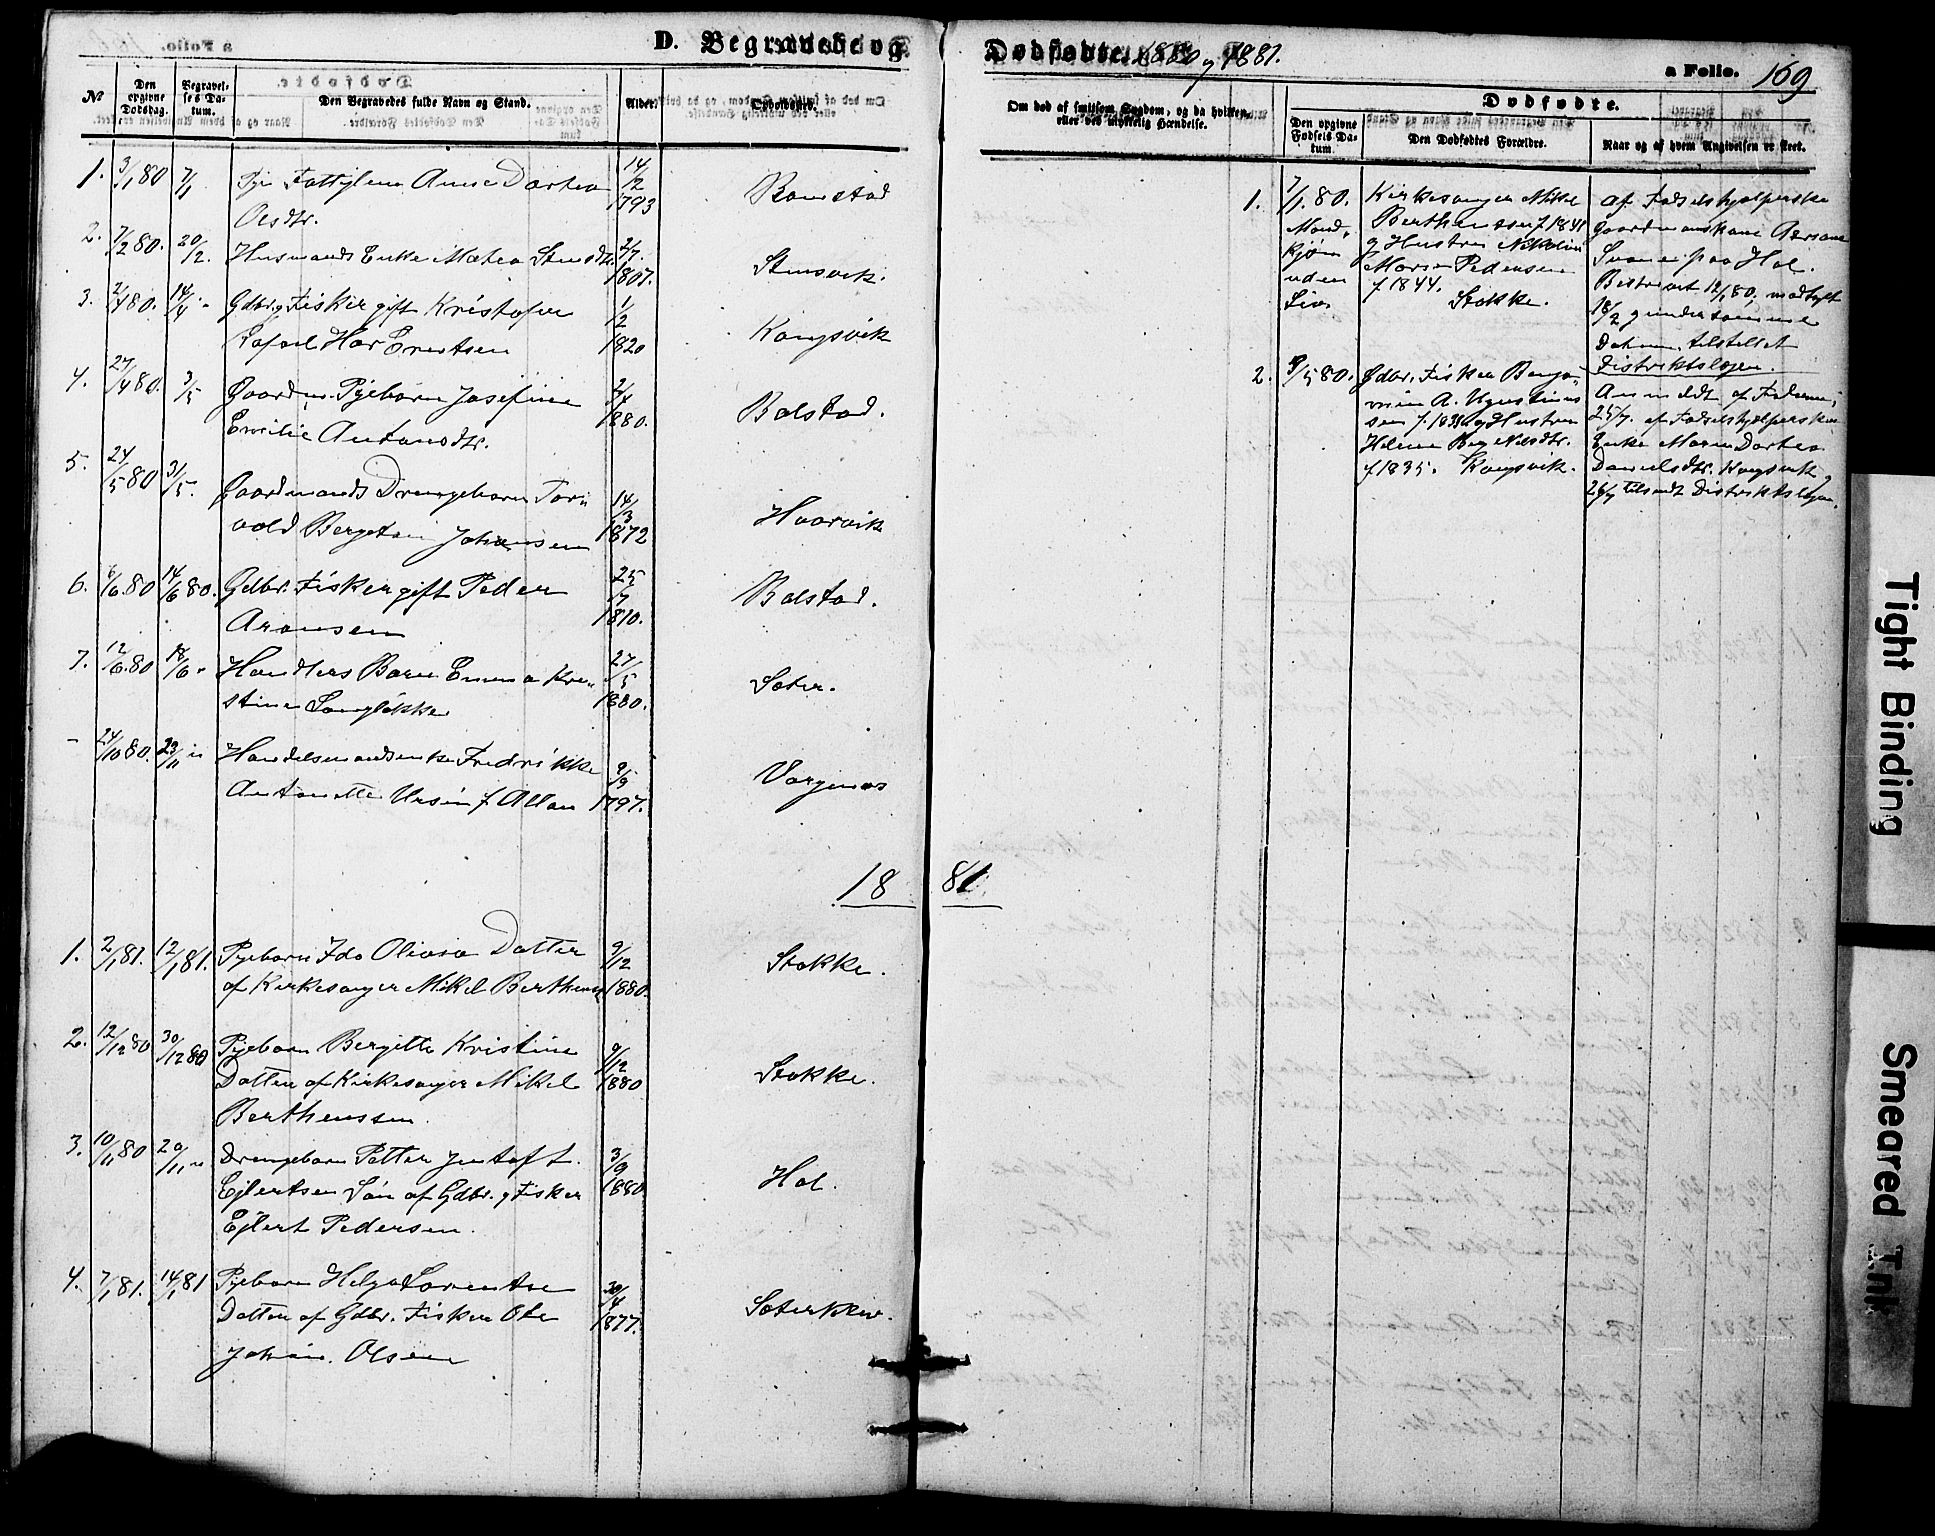 D. Begravede og Dødfødte. 1880 og 1881.
a Folio. 169
№
Den opgivne Dødsdag.
Begravelses Datum.
Den Begravedes fulde Navn og Stand.
Alder.
Opholdssted.
Om død af smitsom Sygdom, og da hvilken, eller ved ulykkelig Hændelse.
Dødfødte.
Den opgivne Fødsels Datum
Den Dødfødtes Forældre.
Naar og af hvem Angivelsen er skeet.
1. 3/1 80 7/1 Pige Fattiglem Anne Dortea 14/2 1793
Olsdtr.
2. 7/2 80. 20/2. Husmands Enke Matea Stensdtr. 2/7. 1807. Stensvik
3. 2/4 80. 14/4 " Gdbr. og Fisker gift Kristofer 1/2 1820 Kongsvik
Rafael Har Erentsen
4. 27/4 80. 3/5 Gaardm. Pigebarn Josefine 2/4 1880. Bolstad.
Emilie Antonsdtr.
5. 24/5 80 31/5. Gaardmands Drengebarn Tor- 14/3 1872 Haarvik
vald Bergeton Johansen
6. 6/6 80 14/6 80. Gdbr. Fisker gift Peder 25/7 1810. Bolstad.
Aronsen
7. 12/6 80 18/6 " Handlers Barn Emma Kri- 27/5 1880. Sæter.
stine Langløkke
- 24/10 80. 23/11 " Handelsmandsenke Fredrikke 9/9 1797. Vargenæs
Antonette Ursin f. Allan
1881
1. 2/1 81. 12/1 81. Pigebarn Ida Olivia Datter 9/12 1880. Stokke.
af Kirkesanger Mikel Berthensen
2. 12/12 80 30/12 80 Pigebarn Bergitte Kristine 9/12 1880 Stokke.
Datter af Kirkesanger Mikel
Berthenssen.
3. 10/11 80 20/11 " Drengebarn Petter Justoft 3/9 1880 Hol.
Ejlertsen Søn af Gdbr. og Fisker
Ejlert Pedersen.
4. 7/1 81. 14/1 81 Pigebarn Helga Lorentse 30/4 1877. Sæterkleiv.
Datter af Gdbr. Fisker Ole
Johan. Olsen
1. 7/1. 80. Mand- kjøn uden Liv.
Kirkesanger Mikel
Berthenssen f. 1841
og Hustru Nikoline
Marie Pedersen
f. 1844. Stokke.
af Fødselshjælperske
Gaardmandskone
paa Hol.
Bestrivet 12/1 80; modtaget
18/2 og under samme
Datum tilstillet
Distriktslægen.
2. 9/5 80. Gdbr. Fisker Benja-
min A. Agustinus
sen f. 1838 og Hustru
Helene Berg Nilsdtr.
f. 1835. Kongsvik.
Anmeldt af Faderen;
25/7. af Fødselshjælperske
Enke Maren Dortea
Danielsdtr. Kongsvik,
26/7 tilsendt Distriktslægen.
Tight Binding
Smeared Ink